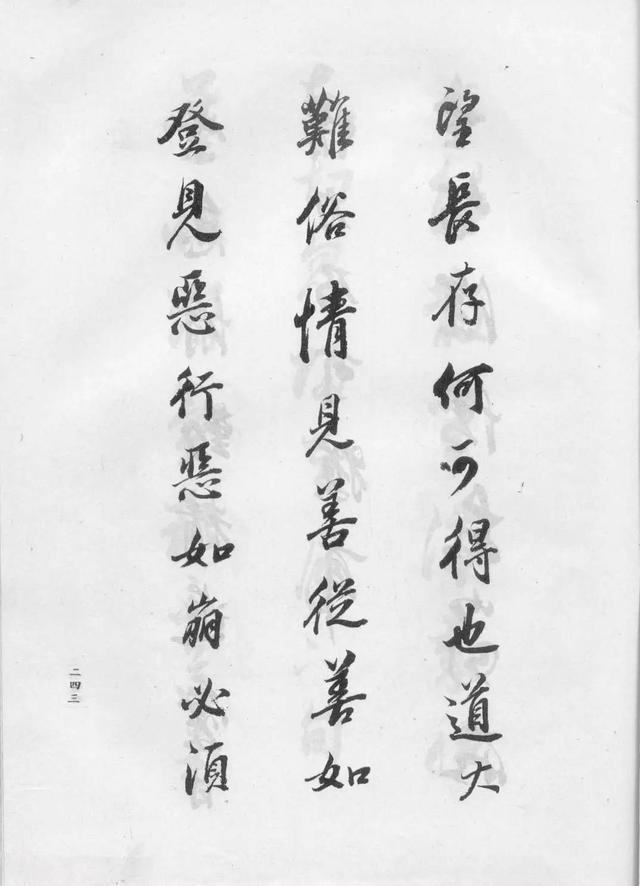 望長存何可得也道大
難俗情見善從善如
登見惡行惡如崩必須
二四三